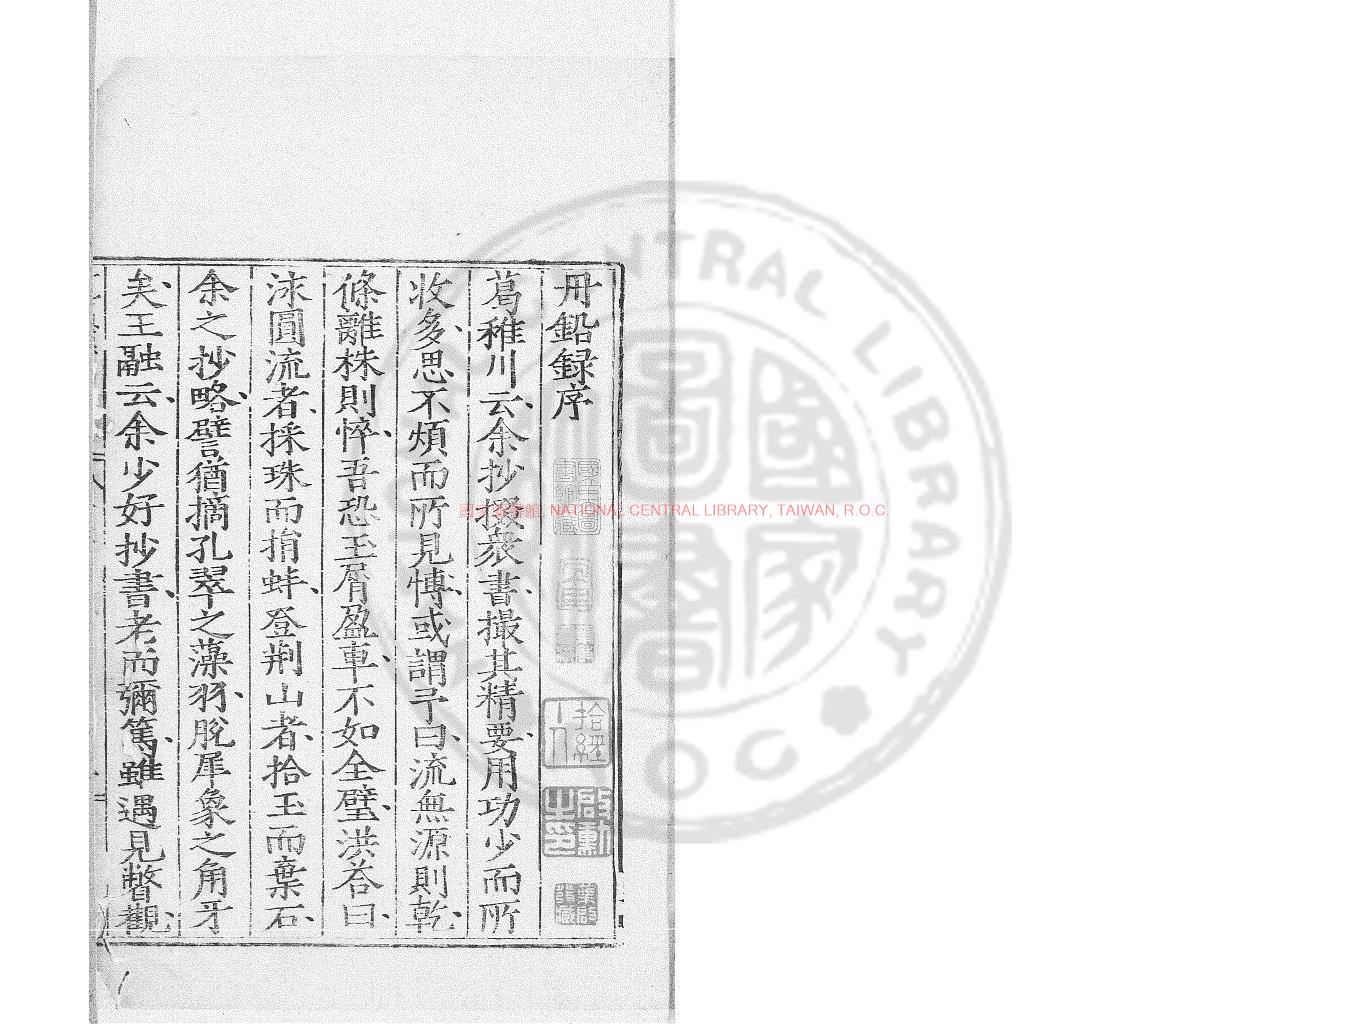 丹鉛録序
葛稚川云余抄掇衆書撮其精要用功少而所
收多思不煩而所見愽或謂予曰流無源則乾
條離株則悴吾恐玉屑盈車不如全璧洪荅曰
泳圓流者採珠而捐蚌登荆山者拾玉而棄石
余之抄略譬猶摘孔翠之藻羽脫犀象之角牙
矣王融云余少好抄書老而彌篤雖遇見瞥觀
拾經
啟勳之印
國家圖書館
NATIONAL CENTRAL LIBRARY, TAIWAN, R.O.C.
CENTRAL LIBRARY